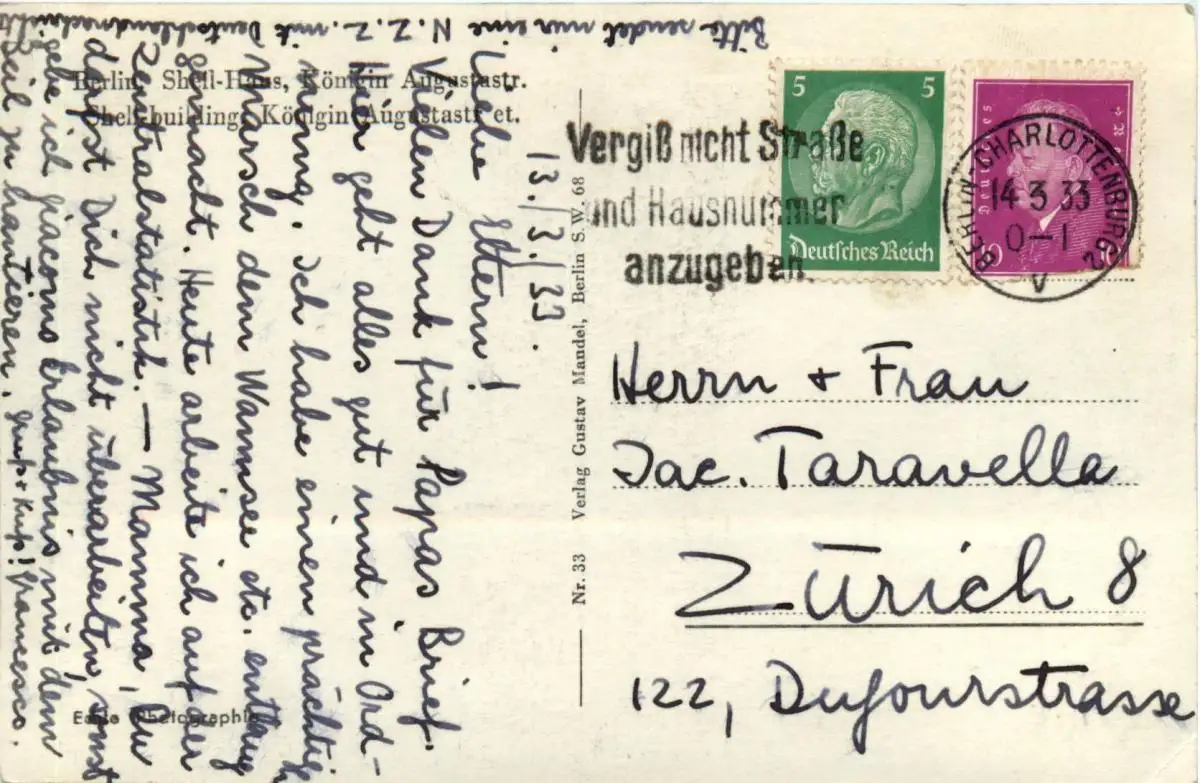 Berlin, Shell-Haus, Königin Augustastr.
Shell-building, Königin Augustastreet.
13./3./33.
Liebe Eltern!
Vielen Dank für Papas Brief.
Hier geht alles gut und in Ord-
nung. Ich habe einen prächtig
Marsch dem Wannsee etc. entlang
gemacht. Heute arbeite ich auf der
Zentralstatistik. — Mamma, Du
darfst Dich nicht überarbeiten, sonst
gebe ich giacomo Erlaubnis mit dem
Seil zu hantieren. Kuss + Kuss! Francesco.
Bitte sendet mir eine N.Z.Z. mit
Echte Photographie
Nr. 33 Verlag Gustav Mandel, Berlin S.W. 68
Vergiß nicht Straße
und Hausnummer
anzugeben.
5 5
Deutsches Reich
Deutsches
BERLIN-CHARLOTTENBURG 2
14.3.33
0–1
V
Herrn + Frau
Jac. Taravella
Zürich 8
122, Dufourstrasse